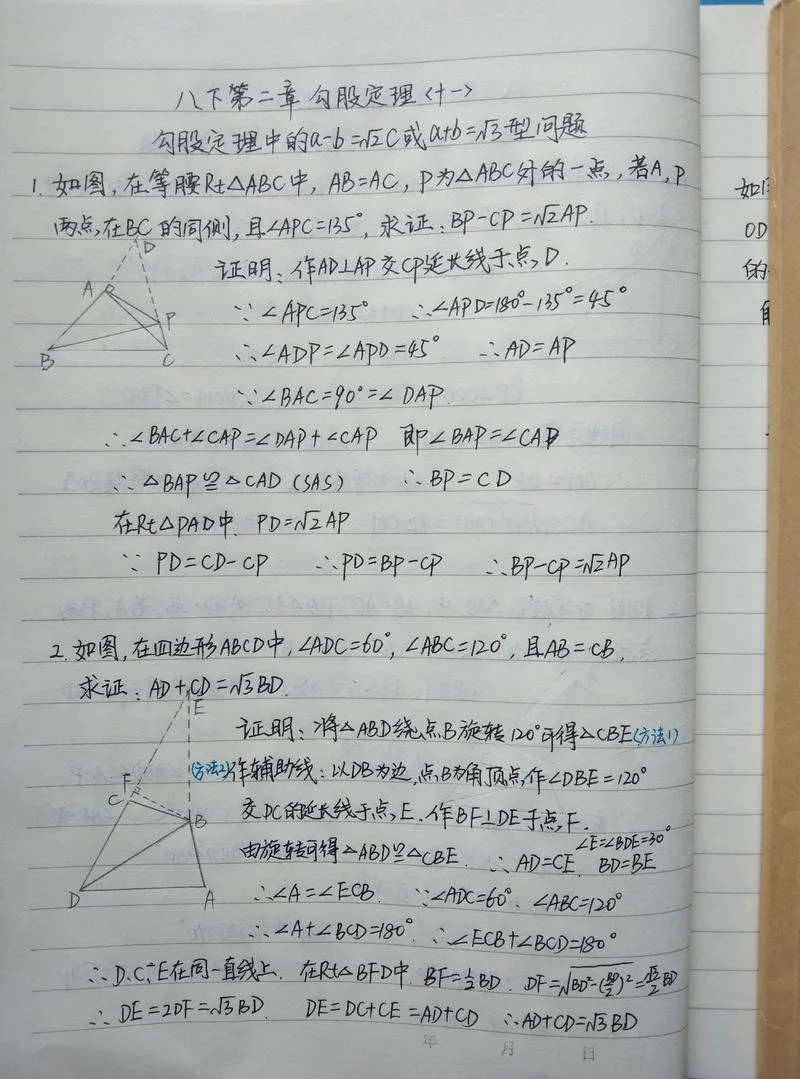 八下第二章 勾股定理<十一>
勾股定理中的a-b=√2C或a+b=√3型问题
1. 如图,在等腰Rt△ABC中, AB=AC, P为△ABC外的一点, 若A, P
两点,在BC的同侧, 且∠APC=135°, 求证: BP-CP=√2AP.
证明: 作AD⊥AP交CP延长线于点D.
∵ ∠APC=135° ∴∠APD=180°-135°=45°
∴∠ADP=∠APD=45° ∴AD=AP
∵∠BAC=90°=∠DAP.
∴∠BAC+∠CAP=∠DAP+∠CAP 即∠BAP=∠CAD
∴△BAP≌△CAD (SAS) ∴BP=CD
在Rt△PAD中. PD=√2AP
∵ PD=CD-CP ∴PD=BP-CP ∴BP-CP=√2AP
D
A
P
B
C
2. 如图, 在四边形ABCD中, ∠ADC=60°, ∠ABC=120°, 且AB=CB,
求证: AD+CD=√3BD.
证明: 将△ABD绕点B旋转120°可得△CBE(方法1)
(方法2)作辅助线: 以DB为边, 点B为角顶点, 作∠DBE=120°
交DC的延长线于点E. 作BF⊥DE于点F.
∠E=∠BDE=30°
由旋转可得△ABD≌△CBE. ∴AD=CE. BD=BE
∴∠A=∠ECB. ∵∠ADC=60°. ∠ABC=120°
∴∠A+∠BCD=180° ∴∠ECB+∠BCD=180°
∴D.C.E在同一直线上. 在Rt△BFD中. BF=½BD. DF=√BD²-(BD/2)²=√3/2BD
∴DE=2DF=√3BD. DE=DC+CE=AD+CD ∴AD+CD=√3BD
E
F
C
B
D
A
年 月 日
如
OD
的